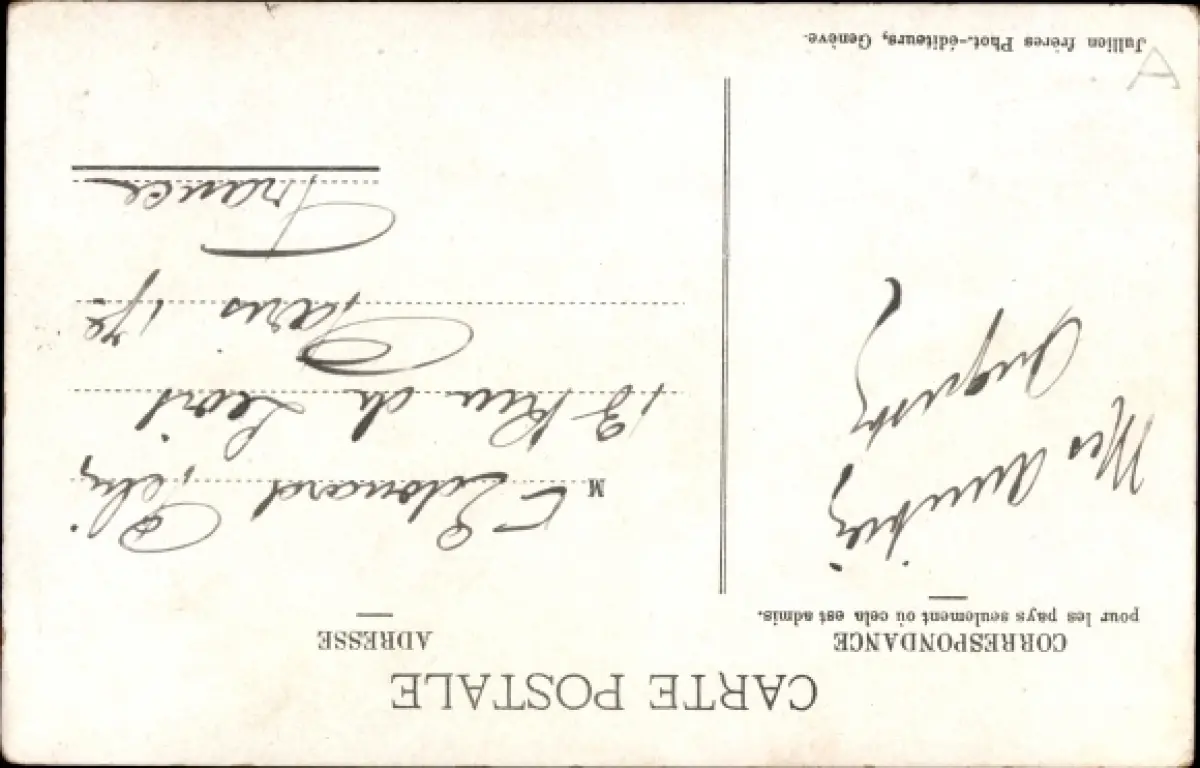 CARTE POSTALE
CORRESPONDANCE
pour les pays seulement où cela est admis.
Mes Amitiés
ADRESSE
M Edouard
13 Rue
Paris 17e
France
Jullien frères Phot.-éditeurs, Genève.
A